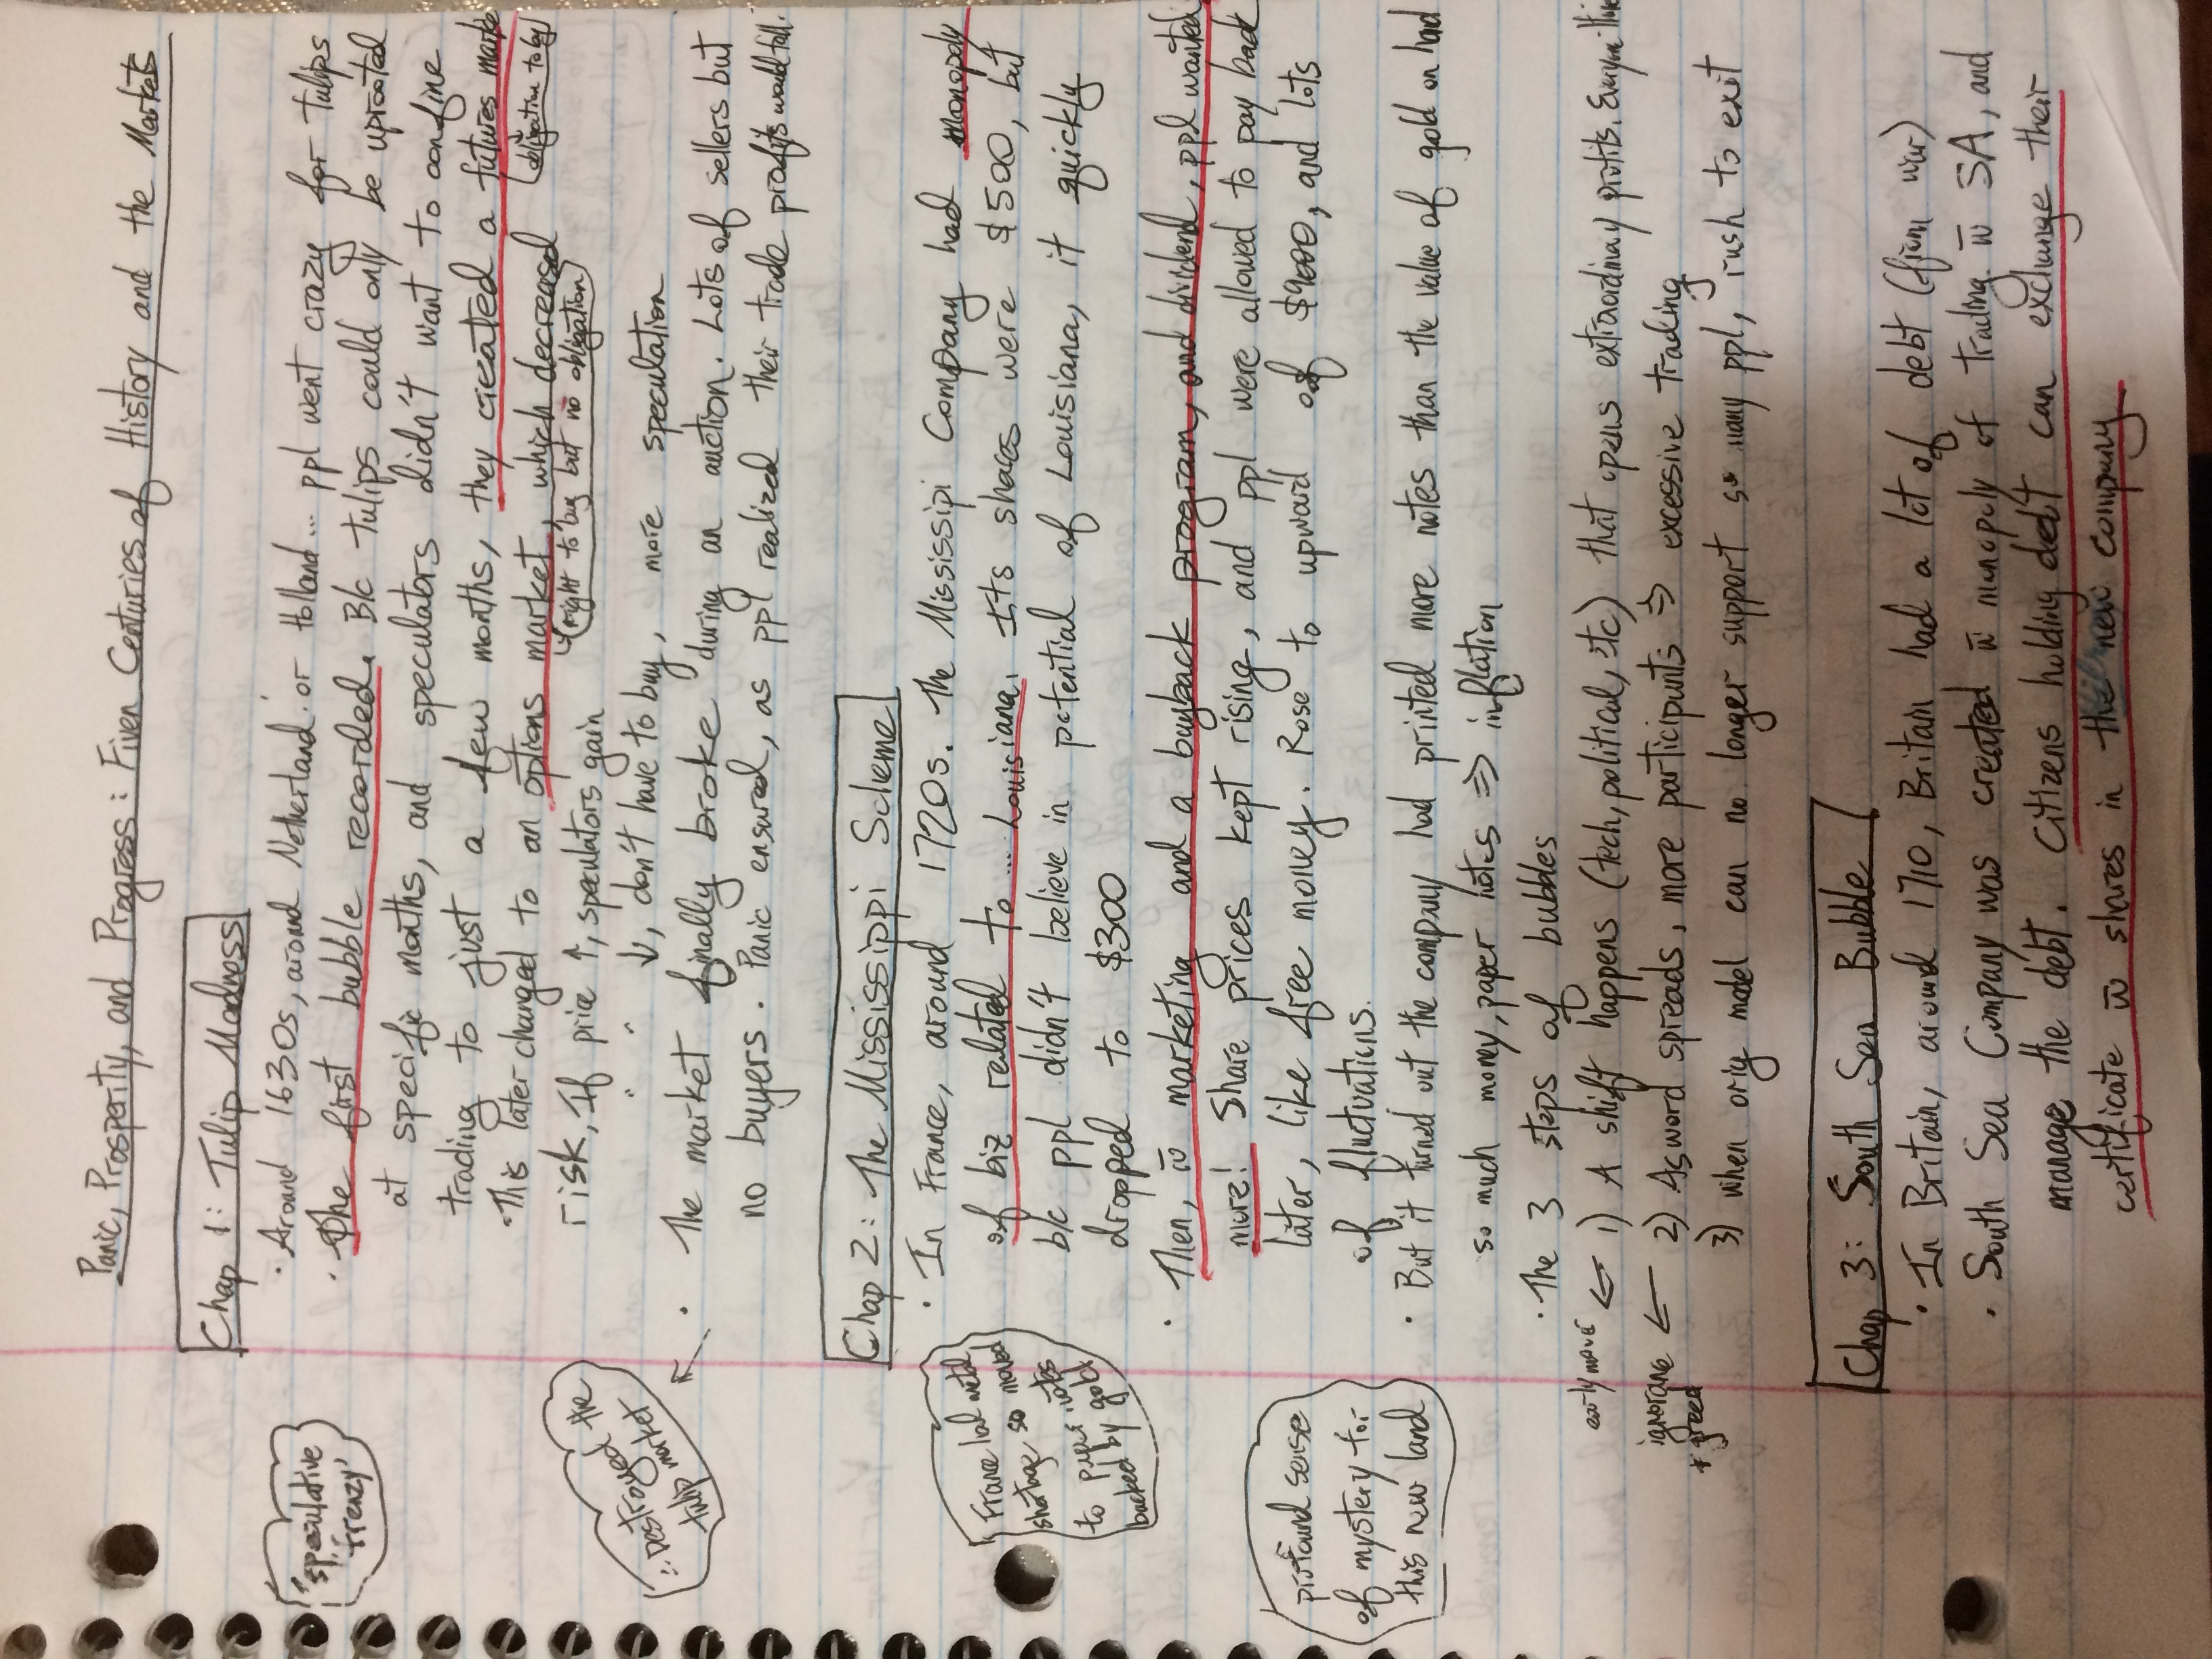 Panic, Prosperity, and Progress: Fiven Centuries of History and the Markets
Chap 1: Tulip Madness
"speculative
frenzy"
· Around 1630s, around Netherland or Holland... ppl went crazy for tulips
· The first bubble recorded. B/c tulips could only be uprooted
at specific months, and speculators didn't want to confine
trading to just a few months, they created a futures marke
obligation to buy
· This later changed to an options market, which decreased
(right to buy but no obligation)
risk, If price ↑, speculators gain
" " ↓, don't have to buy, more speculation
∴ Destroyed the
tulip market
· The market finally broke during an auction. Lots of sellers but
no buyers. Panic ensured, as ppl realized their trade profits would fall.
Chap 2: The Mississippi Scheme
· In France, around 1720s. The Mississipi Company had monopoly
of biz related to ... Louisiana. Its shares were $500, but
b/c ppl didn't believe in potential of Louisiana, it quickly
dropped to $300
France had metal
shortage so moved
to paper notes
backed by gold
· Then, w̄ marketing and a buyback program, and dividend, ppl wanted
more! Share prices kept rising, and ppl were allowed to pay back
later, like free money. Rose to upward of $9000, and lots
of fluctuations.
profound sense
of mystery for
this new land
· But it turned out the company had printed more notes than the value of gold on hand
so much money, paper notes ⇒ inflation
· The 3 steps of bubbles
early mover ← 1) A shift happens (tech, political, etc) that opens extraordinary profits. Everyone
ignorance
+ greed
← 2) As word spreads, more participants ⇒ excessive trading
3) When orig model can no longer support so many ppl, rush to exit
Chap 3: South Sea Bubble
· In Britain, around 1710, Britain had a lot of debt (from war)
· South Sea Company was created w̄ monopoly of trading w̄ SA, and
manage the debt. Citizens holding debt can exchange their
certificate w̄ shares in the new company